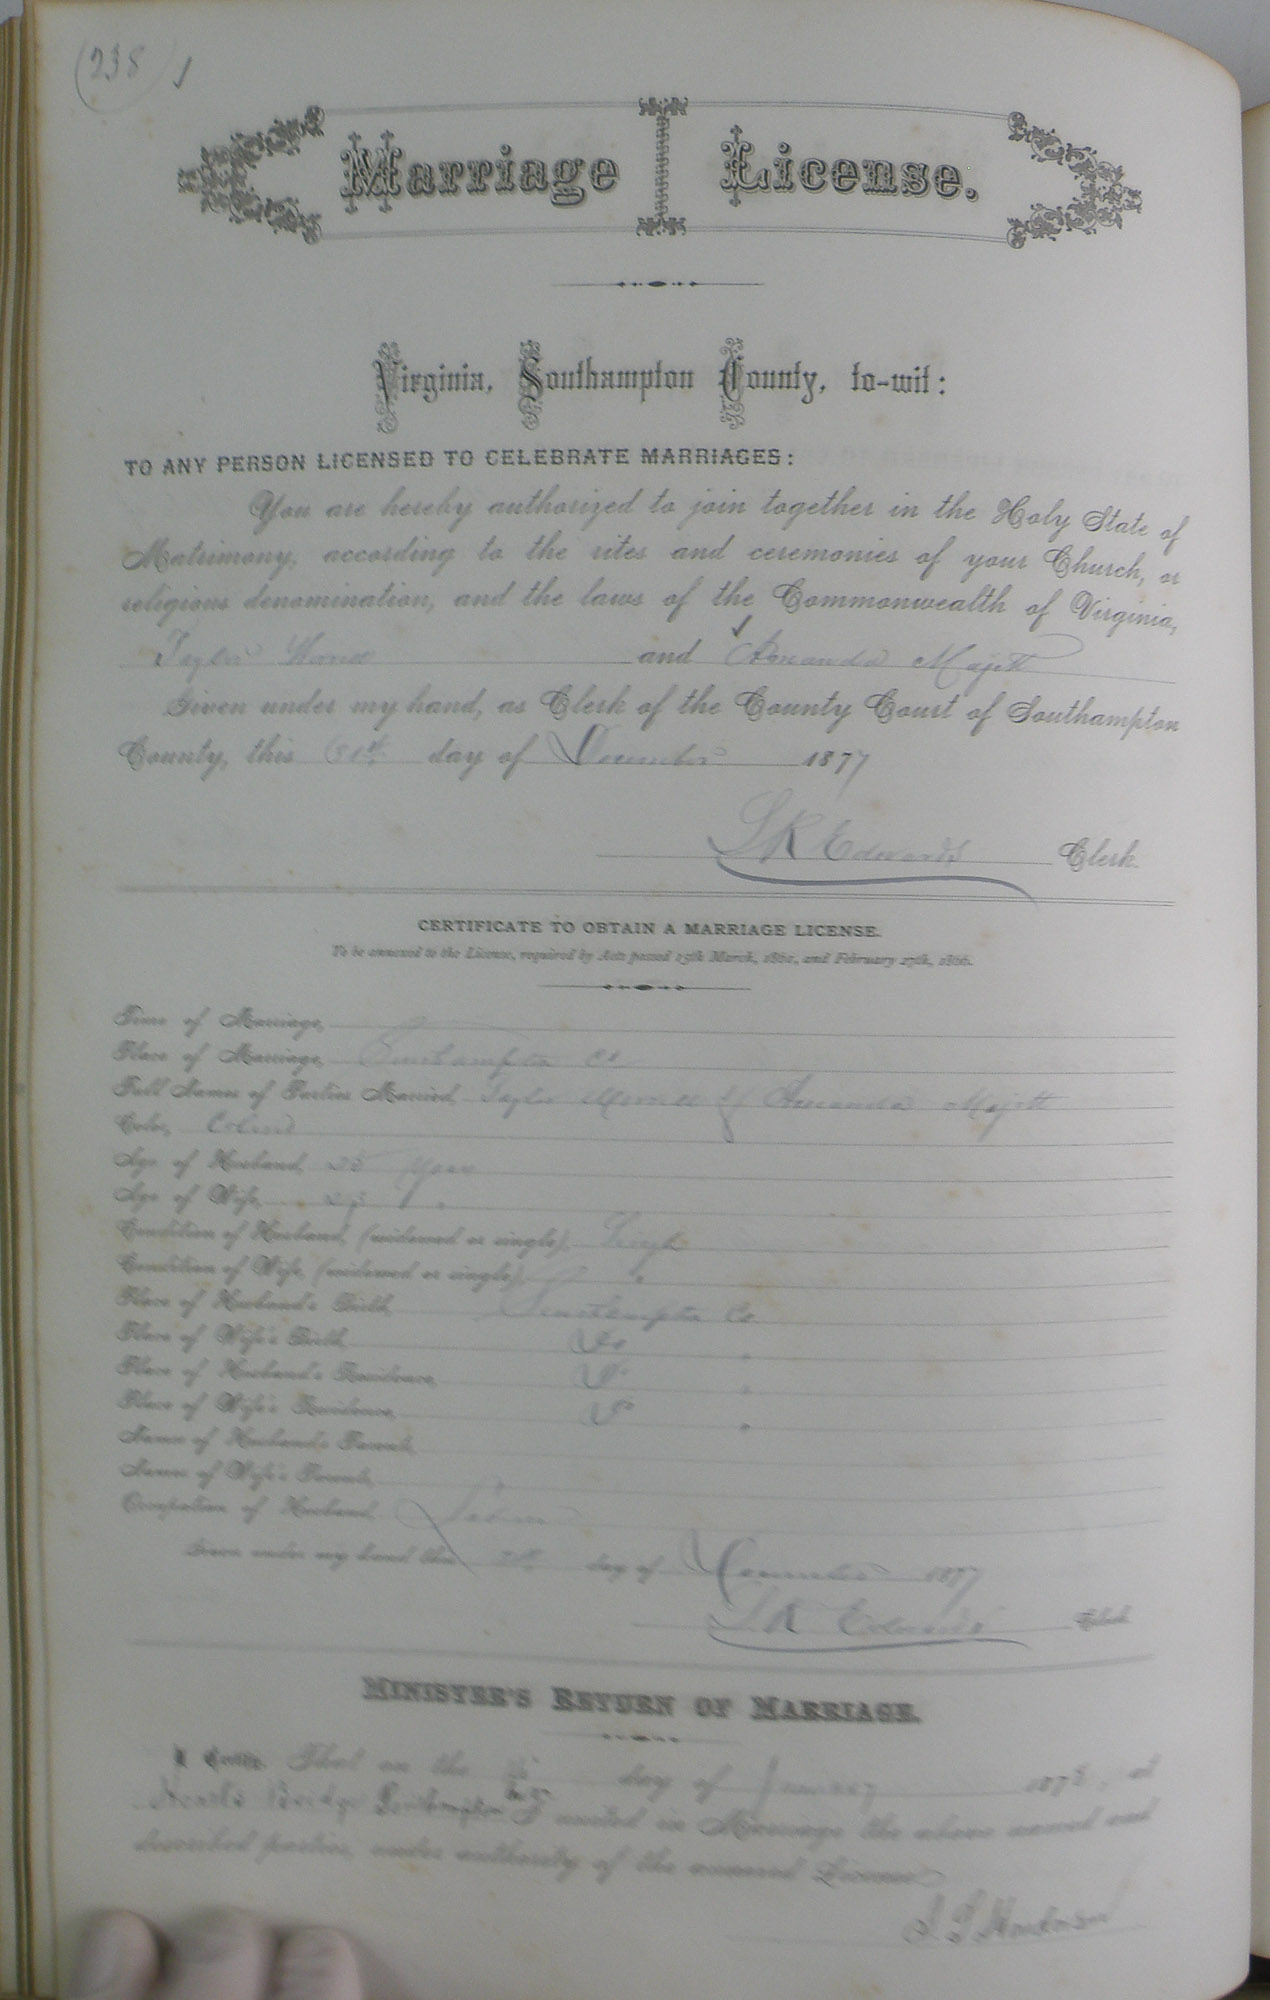 (238)
Marriage License.
Virginia, Southampton County, to-wit:
TO ANY PERSON LICENSED TO CELEBRATE MARRIAGES:
You are hereby authorized to join together in the Holy State of
Matrimony, according to the rites and ceremonies of your Church, or
religious denomination, and the laws of the Commonwealth of Virginia,
Taylor and Amanda Majett
Given under my hand, as Clerk of the County Court of Southampton
County, this day of December 1877
L R Edwards Clerk.
CERTIFICATE TO OBTAIN A MARRIAGE LICENSE.
To be annexed to the License, required by Acts passed 15th March, 1861, and February 27th, 1866.
Time of Marriage,
Place of Marriage, Southampton Co
Full Names of Parties Married, Taylor & Amanda Majett
Color, Colored
Age of Husband, 25 years
Age of Wife, 23 "
Condition of Husband, (widowed or single), Single
Condition of Wife, (widowed or single), "
Place of Husband's Birth, Southampton Co
Place of Wife's Birth, Do "
Place of Husband's Residence, Do "
Place of Wife's Residence, Do "
Name of Husband's Parents,
Names of Wife's Parents,
Occupation of Husband,
Given under my hand this day of December 1877
L R Edwards Clerk.
MINISTER'S RETURN OF MARRIAGE.
I Certify, That on the day of January 1878, at
Bridge Southampton I united in Marriage the above named and
described parties, under authority of the annexed License.